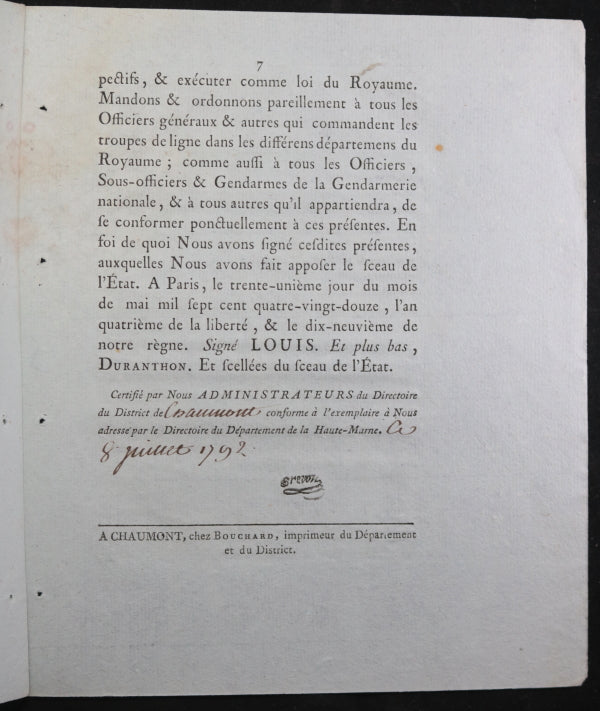 7
pectifs, & exécuter comme loi du Royaume.
Mandons & ordonnons pareillement à tous les
Officiers généraux & autres qui commandent les
troupes de ligne dans les différens départemens du
Royaume ; comme auſſi à tous les Officiers ,
Sous-officiers & Gendarmes de la Gendarmerie
nationale, & à tous autres qu'il appartiendra, de
ſe conformer ponctuellement à ces préſentes. En
foi de quoi Nous avons ſigné ceſdites préſentes,
auxquelles Nous avons fait appoſer le ſceau de
l'État. A Paris, le trente-unième jour du mois
de mai mil ſept cent quatre-vingt-douze , l'an
quatrième de la liberté , & le dix-neuvième de
notre règne. Signé LOUIS. Et plus bas ,
DURANTHON. Et ſcellées du ſceau de l'État.
Certifié par Nous ADMINISTRATEURS du Directoire
du District de Chaumont conforme à l'exemplaire à Nous
adressé par le Directoire du Département de la Haute-Marne. Ce
8 juillet 1792.
A CHAUMONT, chez BOUCHARD, imprimeur du Département
et du District.